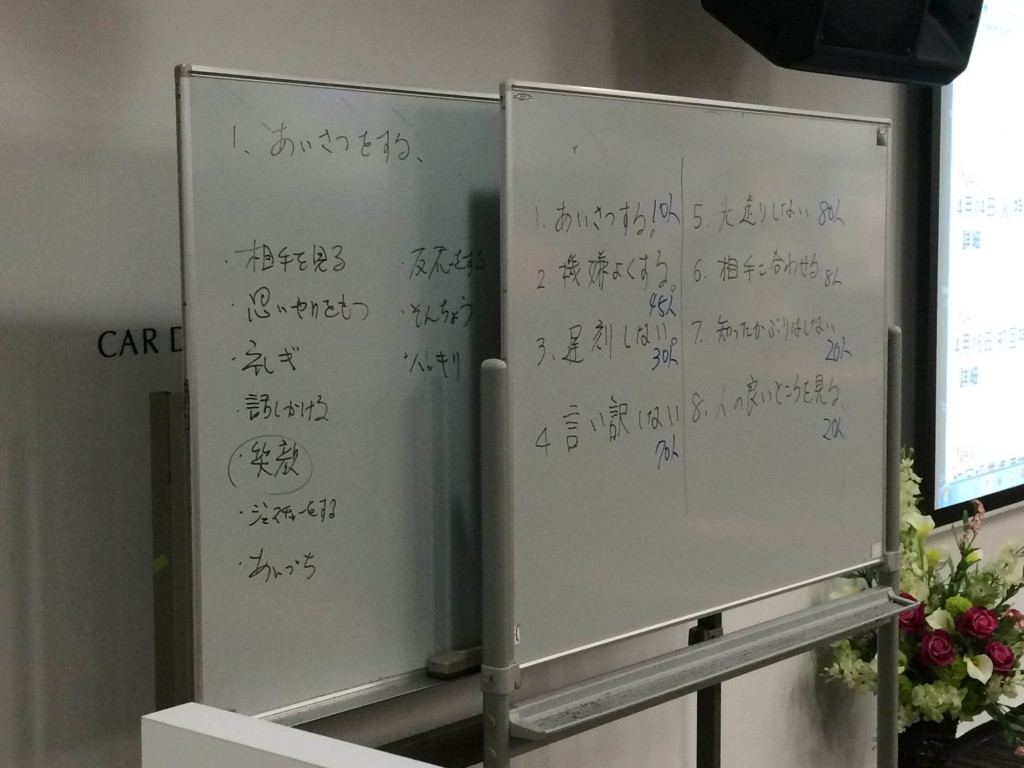 1. あいさつをする、
・相手を見る
・思いやりをもつ
・えしぎ
・話しかける
・笑顔
・ジェスチャーをする
・あいづち
・反応をする
・そんちょう
・ハッキリ
1. あいさつする。10人
2. 機嫌よくする。
45人
3. 遅刻しない。
30人
4 言い訳しない
70人
5. 先送りしない 80人
6. 相手に合わせる。8人
7. 知ったかぶりはしない
20人
8. 人の良いところを見る、
20人
CAR D
4月14日(火)
詳細
4月16日
詳細